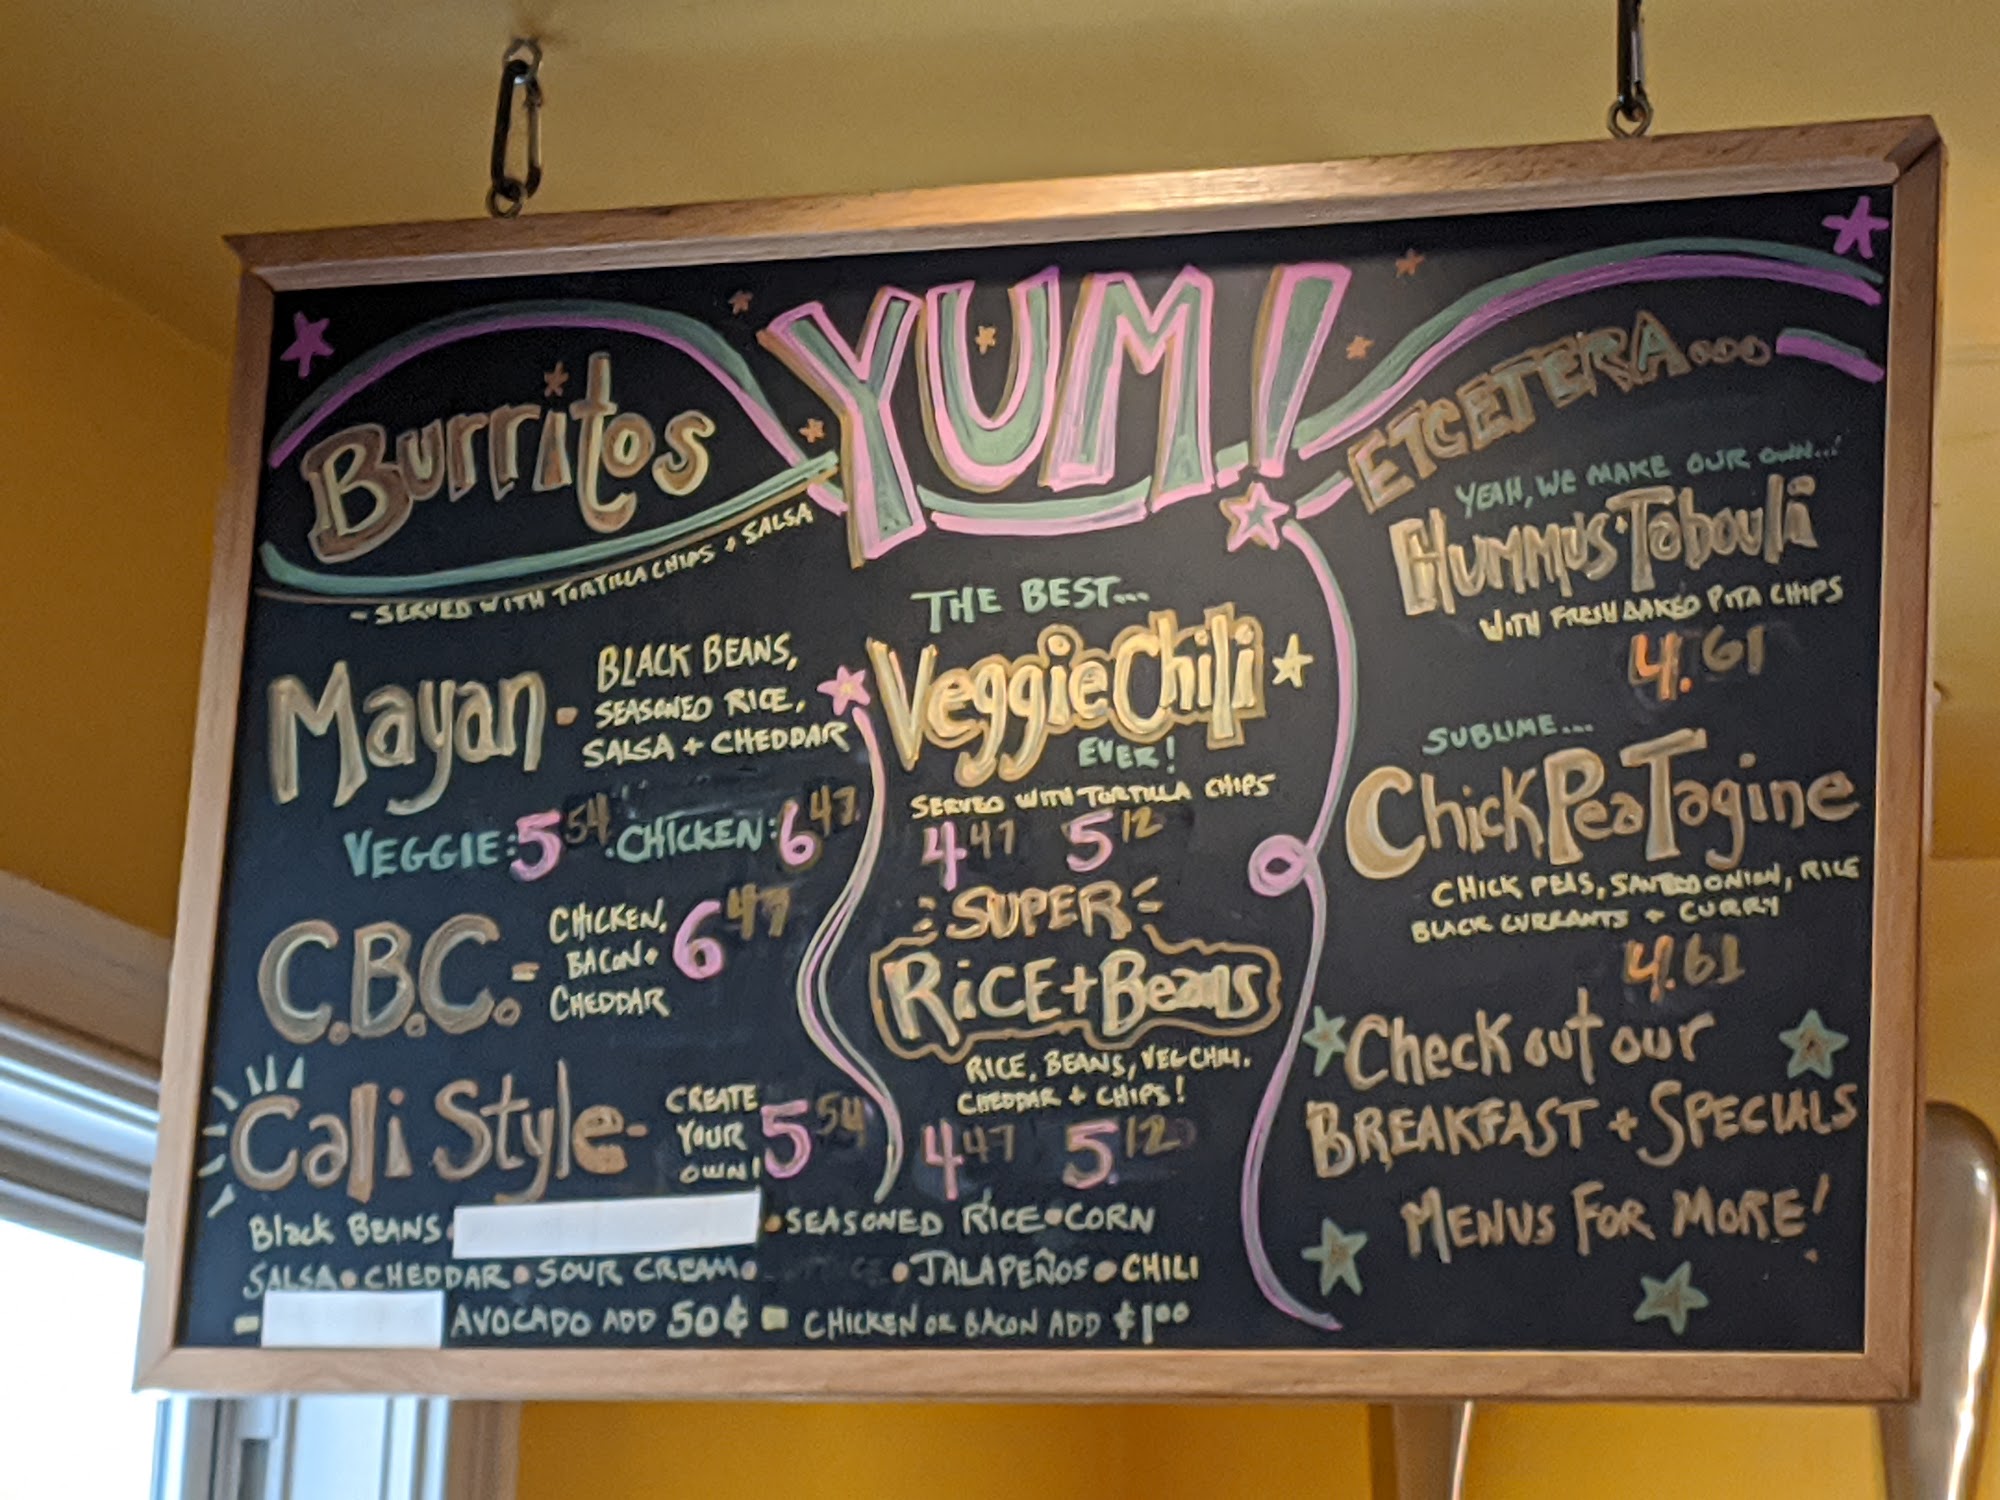 YUM!
Burritos
- SERVED WITH TORTILLA CHIPS + SALSA
Mayan -
BLACK BEANS,
SEASONED RICE,
SALSA + CHEDDAR
VEGGIE: 5 54 . CHICKEN: 6 47
C.B.C. -
CHICKEN,
BACON +
CHEDDAR
6 47
Cali Style -
CREATE
YOUR
OWN!
5 54
Black BEANS •
• SEASONED RICE • CORN
SALSA • CHEDDAR • SOUR CREAM •
• JALAPEÑOS • CHILI
- AVOCADO ADD 50¢ - CHICKEN OR BACON ADD $1.00
THE BEST...
Veggie Chili
EVER!
SERVED WITH TORTILLA CHIPS
4 47 5 12
SUPER
RiCE + Beans
RICE, BEANS, VEG CHILI,
CHEDDAR + CHIPS!
4 47 5 12
ETCETERA...
YEAH, WE MAKE OUR OWN...!
HUMMUS · Tabouli
WITH FRESH BAKED PITA CHIPS
4.61
SUBLIME...
ChickPea Tagine
CHICK PEAS, SAUTEED ONION, RICE
BLACK CURRANTS + CURRY
4.61
Check out our
BREAKFAST + SPECIALS
MENUS FOR MORE!